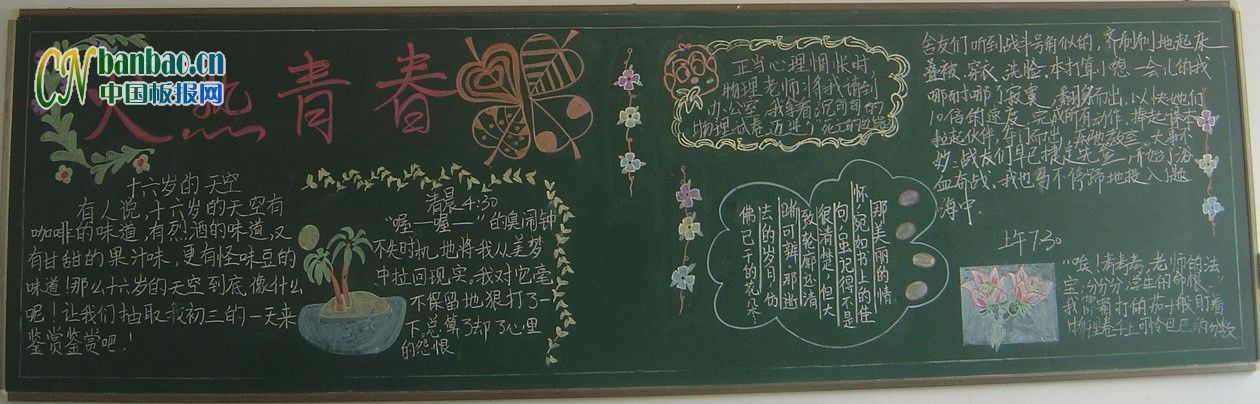 CN banbao.cn
中国板报网
火热青春
十六岁的天空
有人说,十六岁的天空有
咖啡的味道,有烈酒的味道,又
有甘甜的果汁味,更有怪味豆的
味道!那么十六岁的天空到底像什么
呢!让我们抽取我初三的一天来
鉴赏鉴赏吧!
清晨4:30
"喔—喔—"的臭闹钟
不失时机地将我从美梦
中拉回现实。我对它毫
不保留地狠打了一
下,总算了却了心里
的怨恨
正当心理惆怅时
物理老师将我请到
办公室 我拿着沉甸甸的
物理试卷
那美丽的情
怀,宛如书上的佳
句,虽记得不是
很清楚,但大
致轮廓还清
晰可辨,那逝
去的岁月,仿
佛已干的花朵…
舍友们听到战斗号角似的,齐刷刷地起床
叠被、穿衣、洗脸。本打算小憩一会儿的我
哪耐得了寂寞,翻身而出,以快她们
10倍的速度,完成所有动作,捧起课本
拉起伙伴,夺门而出,
妙:战友们早已捷足先登,开始了浴
血奋战,我也马不停蹄地投入了题
海中。
上午7:30
"唉!考考考,老师的法
宝,分分分,学生的命根。
我常霜打的茄子般盯着
物理卷子上可怜巴巴的分数